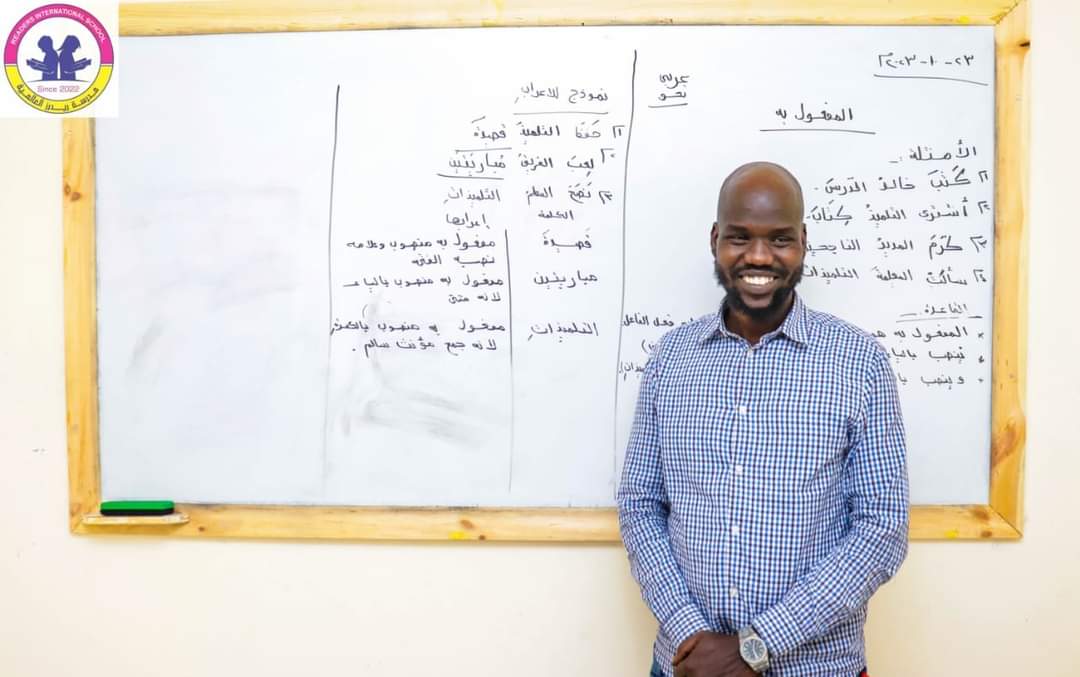 READERS INTERNATIONAL SCHOOL
Since 2022
مدرسة ريدرز العالمية
٢٣-١٠-٢٠٢٣م
عربي
نحو
المفعول به
الأمثلة:
١/ كَتَبَ خالدُ الدرسَ.
٢/ أشترى التلميذُ كِتابَ
٣/ كَرَّمَ المديرُ الناجحين
٤/ سألت المعلمة التلميذات
القاعدة:
* المفعول به
فعل الفاعل
* يُنصب بالياء
* وينصب با
نموذج للاعراب
١/ حفظ التلميذُ قصيدةً
٢/ لعِبَ الفريقُ مُباريَتَين
٣/ نَصَحَ المعلم التلميذاتِ
الكلمة
إعرابها
قصيدةً
مفعول به منصوب وعلامه
نصبه الفتحه
مباريتين
مفعول به منصوب بالياء
لانه مثنى
التلميذاتِ
مفعول به منصوب بالكسره
لانه جمع مؤنث سالم.